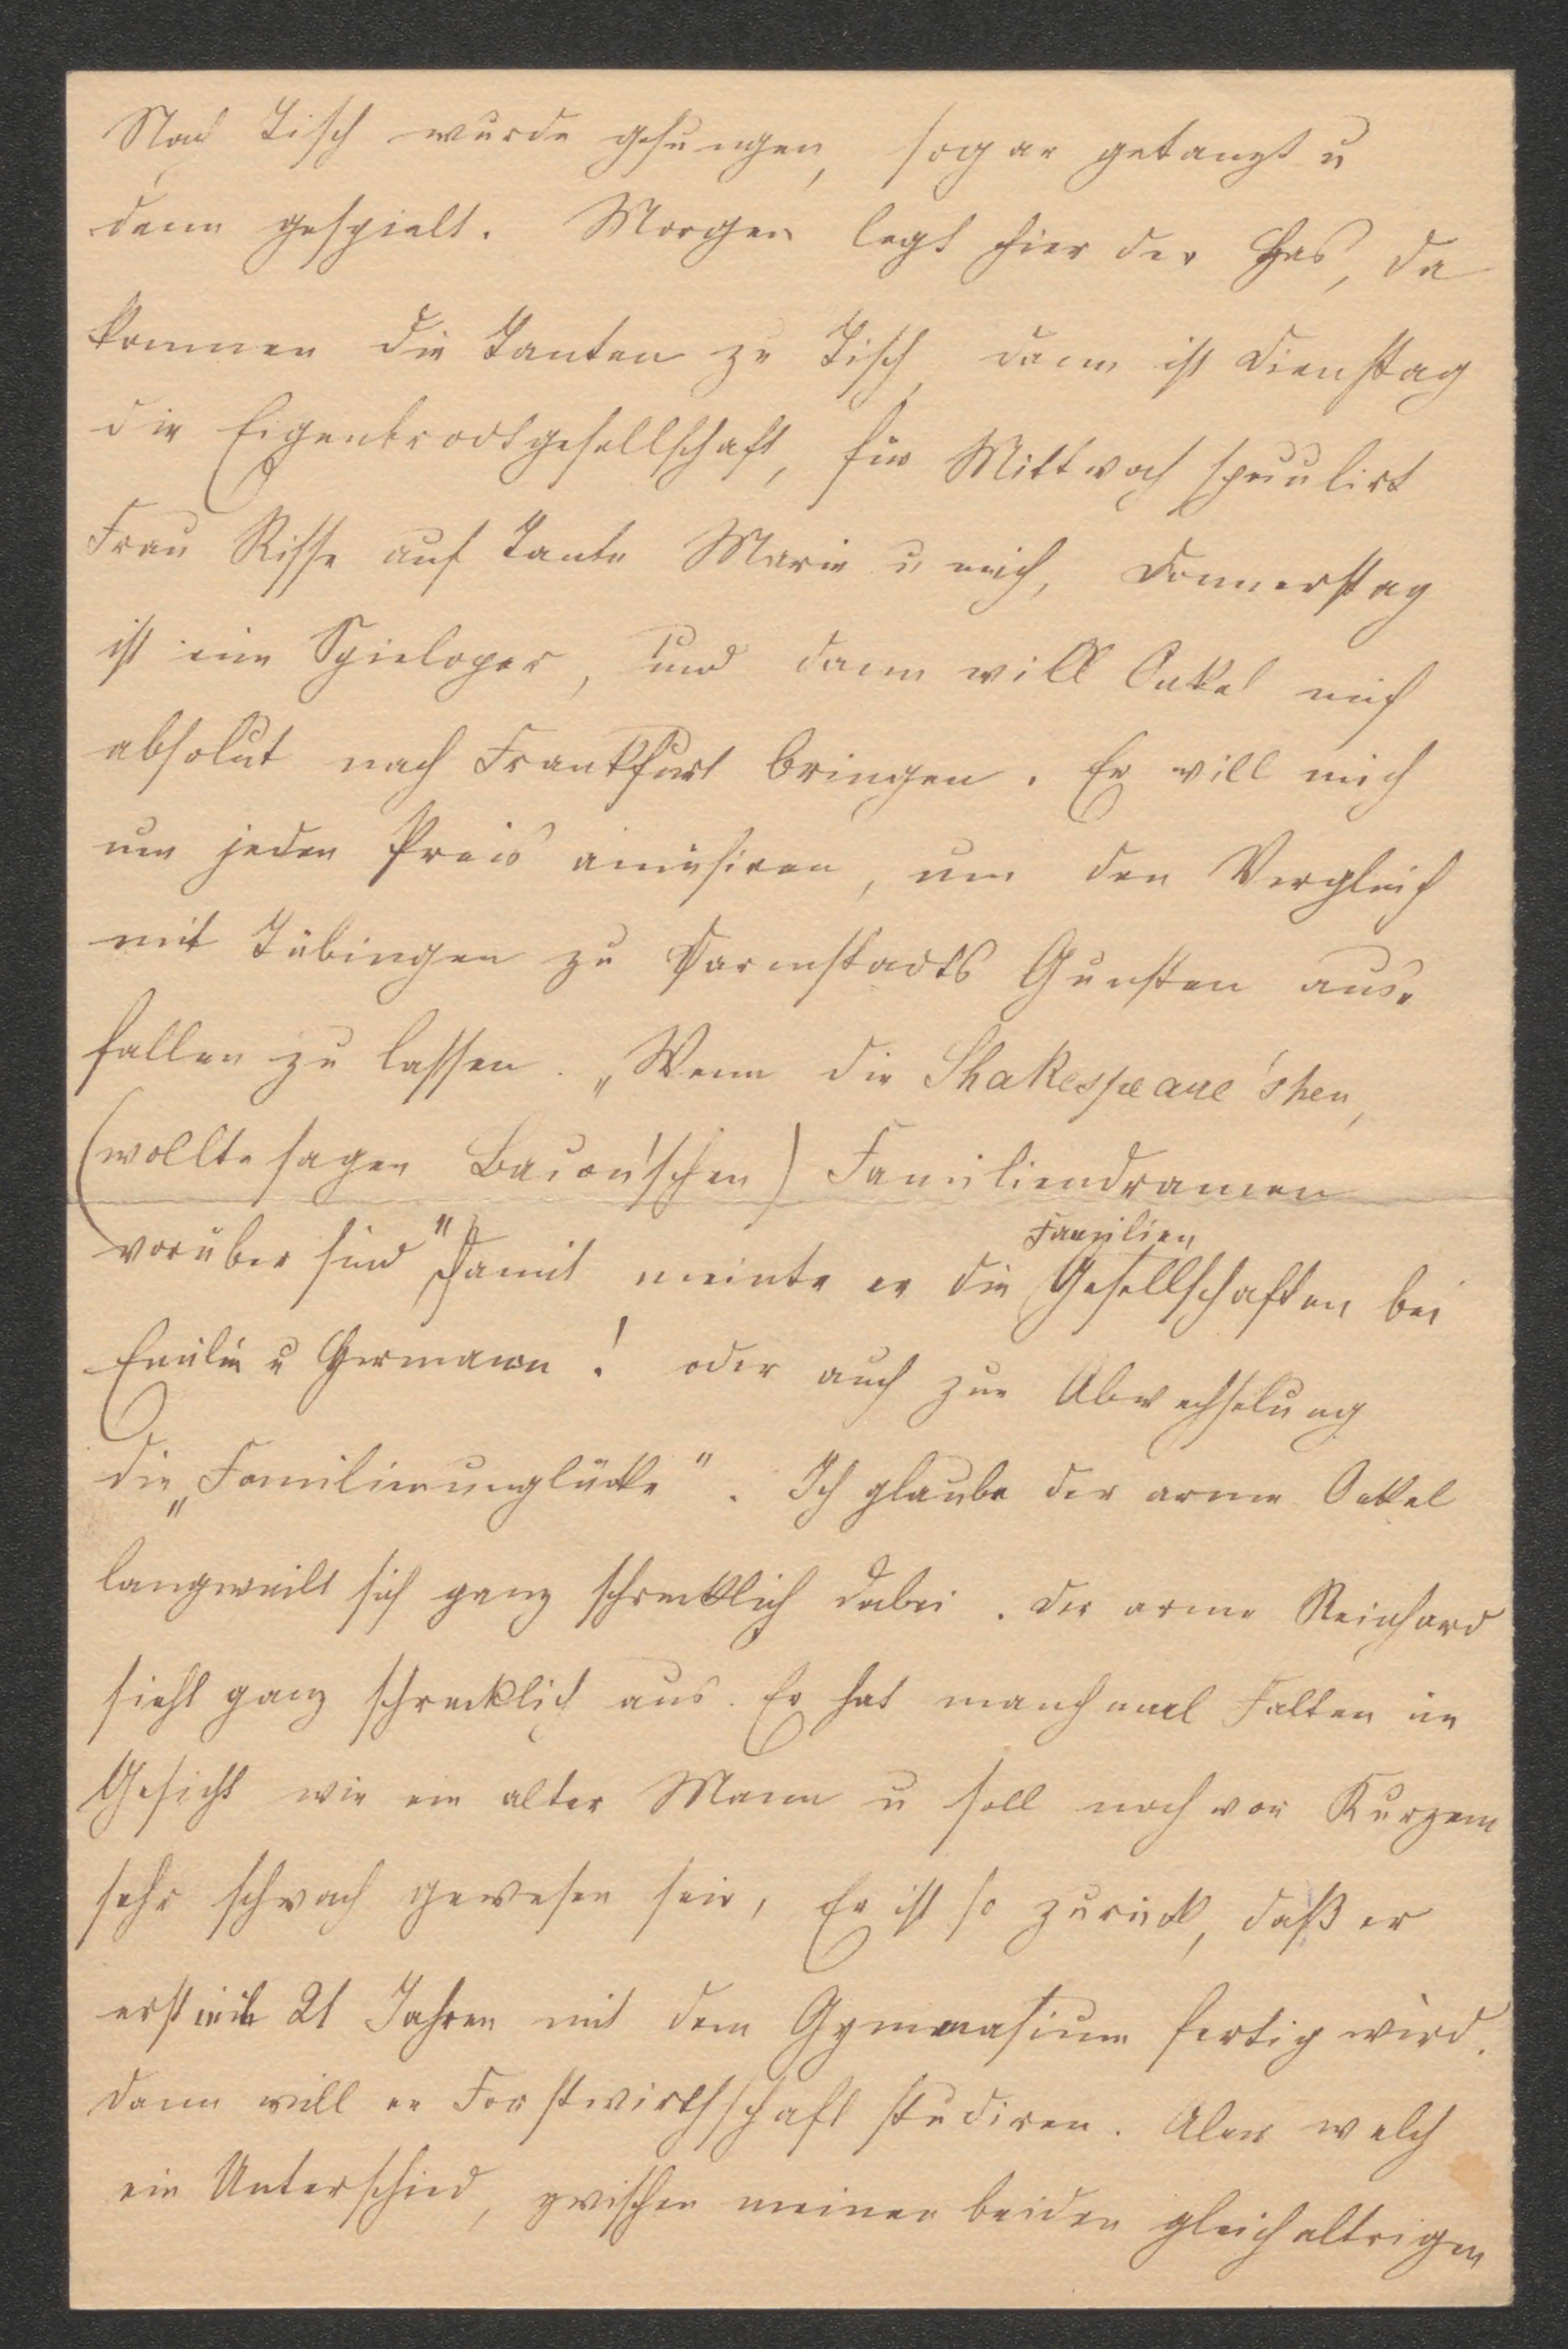 Nach Tisch wurde gesungen, sogar getanzt u
dann gespielt. Morgen legt hier der Has, da
kommen die Tanten zu Tisch, dann ist Dienstag
die Eigenbrodtgesellschaft, für Mittwoch spekulirt
Frau Risse auf Tante Marie u mich, Donnerstag
ist eine Spieloper, und dann will Onkel mich
absolut nach Frankfurt bringen. Er will mich
um jeden Preis amüsiren, um den Vergleich
mit Tübingen zu Darmstadts Gunsten aus-
fallen zu lassen. „Wenn die Shakespeare'shen,
(wollte sagen Bacon'schen) Familiendramen
vorüber sind" Damit meinte er die Familien
Gesellschaften bei
Emilie u Hermann! oder auch zur Abwechselung
die „Familienunglücke". Ich glaube der arme Onkel
langweilt sich ganz schrecklich dabei. Der arme Reinhard
sieht ganz schrecklich aus. Er hat manchmal Falten im
Gesicht wie ein alter Mann u soll noch vor Kurzem
sehr schwach gewesen sein, Er ist so zurück, daß er
erst mit 21 Jahren mit dem Gymnasium fertig wird.
dann will er Forstwirthschaft studiren. Aber welch
ein Unterschied, zwischen meinen beiden gleichaltrigen